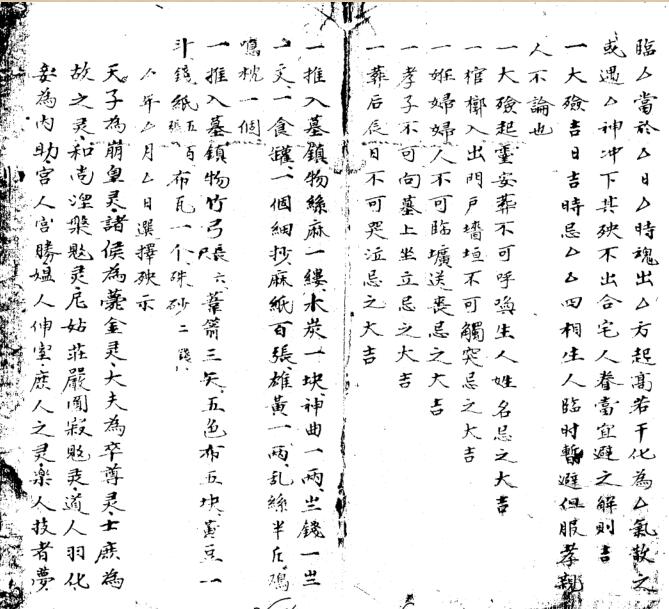 臨厶當於厶日厶時魂出厶方起高若干化為厶氣散之
或遇厶神冲下其殃不出合宅人眷當宜避之解則吉
一大殮吉日吉時忌厶厶四相生人臨时暫避但服孝親
人不論也
一大殮起靈安葬不可呼喚生人姓名忌之大吉
一棺槨入出門戶墻垣不可觸突忌之大吉
一姙婦婦人不可臨壙送喪忌之大吉
一孝子不可向墓上坐立忌之大吉
一葬后辰日不可哭泣忌之大吉
一推入墓鎮物絲麻一縷木炭一块神曲一兩一
一文一食罐一個細抄麻紙百張雄黃一兩乱絲半斤鳴
鳴枕一個
一推入墓鎮物竹弓長六尺葦箭三矢五色布五块黃豆一
斗錢紙五百張布瓦一个硃砂二錢
厶年厶月厶日選擇殃示
天子為崩皇灵諸侯為薨金灵大夫為卒尊灵士庶為
故之灵和尚涅槃灵尼姑莊嚴圓寂灵道人羽化
妾為內助宮人宮勝媼人伸室庶人之灵樂人技者夢